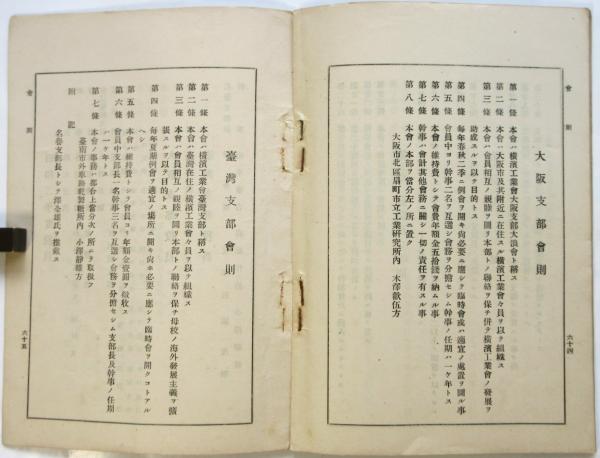 會則
六十四
大阪支部會則
第一條 本會ハ橫濱工業會大阪支部大浪會ト稱ス
第二條 本會ハ大阪市及其附近ニ在住スル橫濱工業會々員ヲ以テ組織ス
第三條 本會ハ會員相互ノ親睦ヲ圖リ本部トノ聯絡ヲ保チ併テ橫濱工業會ノ發展ヲ
助成スルヲ以テ目的トス
第四條 每年春秋二季ニ例會ヲ開キ尙必要ニ應シテ臨時會或ハ適宜ノ處置ヲ圖ル事
第五條 會員中ヨリ幹事二名ヲ互選シ會務ヲ分擔セシム幹事ノ任期ハ一ケ年トス
第六條 本會ノ維持費トシテ會費年額金五拾錢ヲ納ムル事
第七條 幹事ハ會計其他會務ニ關シ一切ノ責任ヲ有スル事
第八條 本會ノ本部ヲ當分左ノ所ニ置ク
大阪市北區扇町市立工業研究所內 木澤歙伍方
會則
六十五
臺灣支部會則
第一條 本會ハ橫濱工業會臺灣支部ト稱ス
第二條 本會ハ臺灣在住ノ橫濱工業會々員ヲ以テ組織ス
第三條 本會ハ會員相互ノ親睦ヲ圖リ本部トノ聯絡ヲ保チ母校ノ海外發展主義ヲ擴
張スルヲ以テ目的トス
第四條 每年夏期例會ヲ適宜ノ場所ニ開キ尙ホ必要ニ應シテ臨時會ヲ開クコトアル
ヘシ
第五條 本會ハ維持費トシテ會員ヨリ年額金壹圓ヲ徵收ス
第六條 會員中支部長一名幹事三名ヲ互選シ會務ヲ分擔セシム支部長及幹事ノ任期
ハ一ケ年トス
第七條 本會ノ事務ハ都合上當分次ノ所ニテ取扱フ
臺南市外車路墘製糖所內 小澤靜雄方
附記
名譽支部長トシテ澤全雄氏ヲ推戴ス